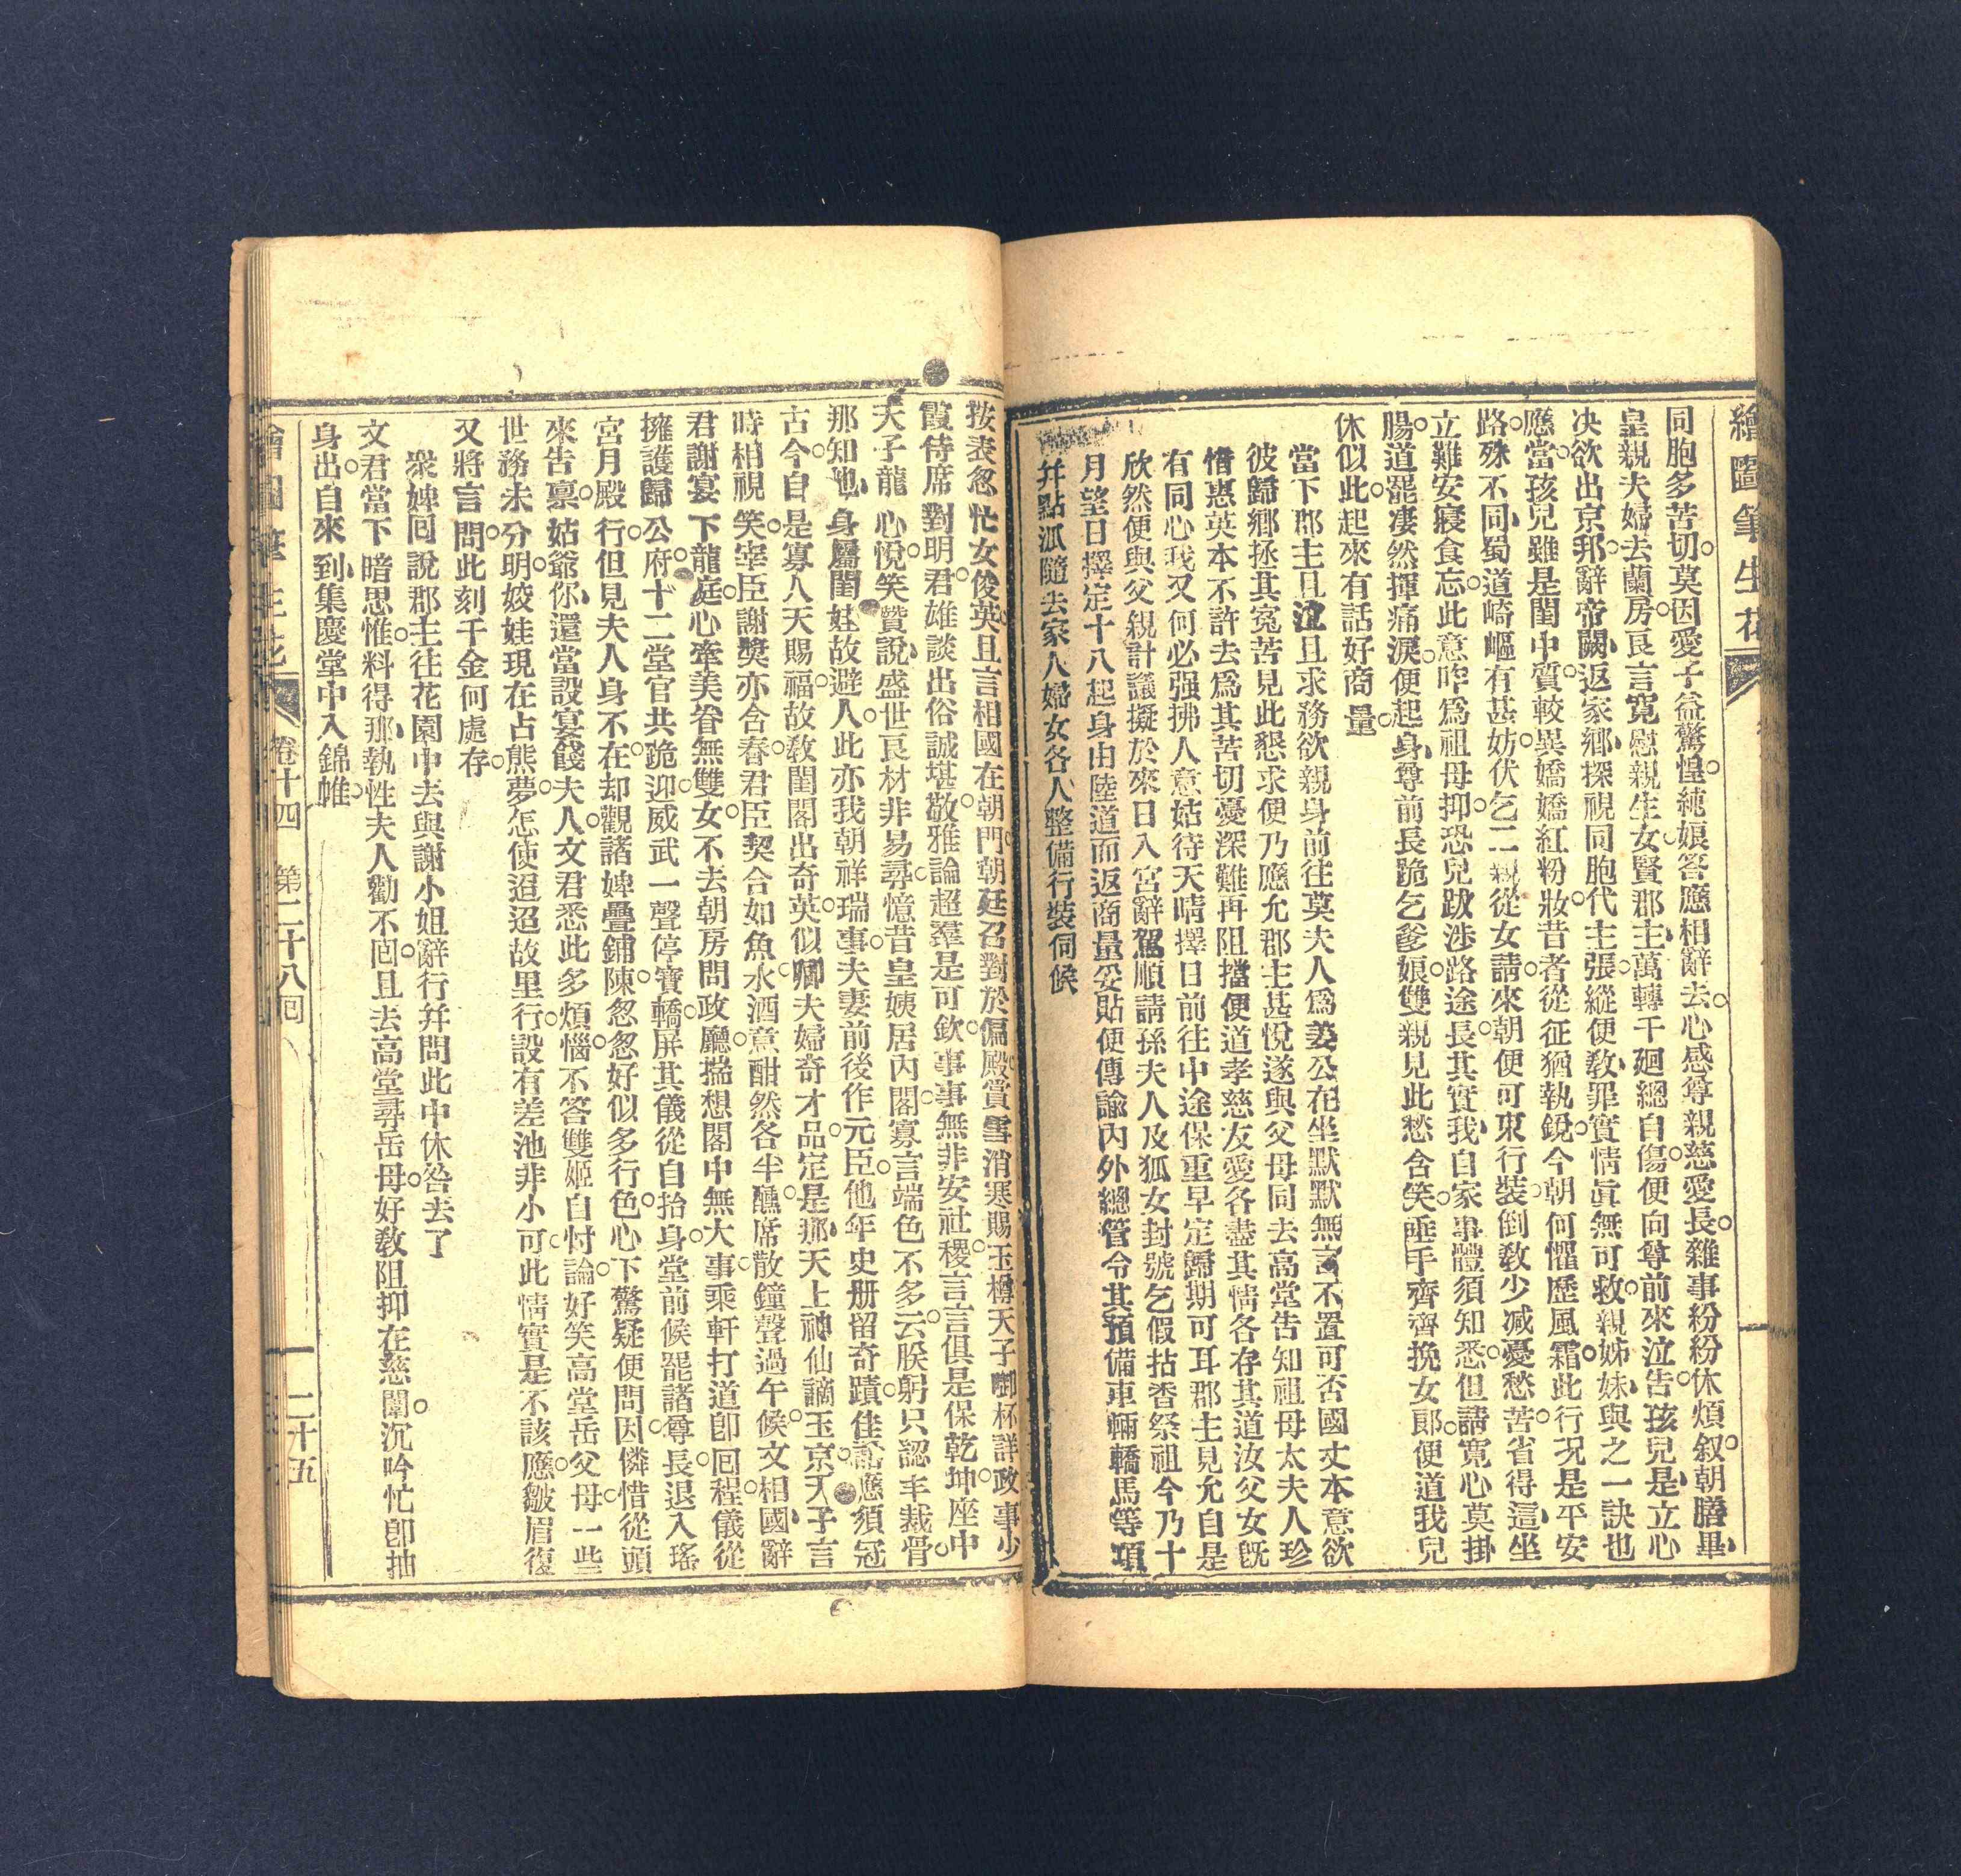 繪圖筆生花
同胞多苦切莫因愛子益驚惶純娘答應相辭去心感尊親慈愛長雜事紛紛休煩叙朝膳畢
皇親夫婦去蘭房良言寬慰親生女賢郡主萬轉千廻總自傷便向尊前來泣告孩兒是立心
决欲出京邦辭帝闕返家鄉探視同胞代主張縱便教罪實情眞無可救親姊妹與之一訣也
應當孩兒雖是閨中質較異嬌嬌紅粉妝昔者從征猶執銳今朝何懼歷風霜此行况是平安
路殊不同蜀道崎嶇有甚妨伏乞二親從女請來朝便可束行裝倒教少减憂愁苦省得這坐
立難安寢食忘此意昨爲祖母抑恐兒跋涉路途長其實我自家事體須知悉但請寬心莫掛
腸道罷凄然揮痛淚便起身尊前長跪乞爹娘雙親見此愁含笑垂手齊齊挽女郎便道我兒
休似此起來有話好商量
當下郡主且泣且求務欲親身前往莫夫人爲姜公在坐默默無言不置可否國丈本意欲
彼歸鄉拯其寃苦見此懇求便乃應允郡主甚悅遂與父母同去高堂告知祖母太夫人珍
惜惠英本不許去爲其苦切憂深難再阻擋便道孝慈友愛各盡其情各存其道汝父女旣
有同心我又何必强拂人意姑待天晴擇日前往中途保重早定歸期可耳郡主見允自是
欣然便與父親計議擬於來日入宮辭駕順請孫夫人及狐女封號乞假拈香祭祖今乃十
月望日擇定十八起身由陸道而返商量妥貼便傳諭內外總管令其預備車輛轎馬等項
幷點派隨去家人婦女各人整備行裝伺候
按表忽忙女俊英且言相國在朝門朝廷召對於偏殿賞雪消寒賜玉樽天子啣杯詳政事少
霞侍席對明君雄談出俗誠堪敬雅論超羣是可欽事事無非安社稷言言俱是保乾坤座中
天子龍心悅笑贊說盛世良材非易尋憶昔皇姨居內閣寡言端色不多云朕躬只認丰裁骨
那知他身屬閨娃故避人此亦我朝祥瑞事夫妻前後作元臣他年史册留奇蹟佳說應須冠
古今自是寡人天賜福故敎閨閣出奇英似卿夫婦奇才品定是那天上神仙謫玉京天子言
時相視笑宰臣謝奬亦含春君臣契合如魚水酒意酣然各半醺席散鐘聲過午候文相國辭
君謝宴下龍庭心牽美眷無雙女不去朝房問政廳揣想閣中無大事乘軒打道卽囘程儀從
擁護歸公府十二堂官共跪迎威武一聲停寶轎屏其儀從自抬身堂前候罷諸尊長退入瑤
宮月殿行但見夫人身不在却觀諸婢疊鋪陳忽忽好似多行色心下驚疑便問因憐惜從頭
來告禀姑爺你還當設宴餞夫人文君悉此多煩惱不答雙姬自忖論好笑高堂岳父母一些
世務未分明姣娃現在占熊夢怎使迢迢故里行設有差池非小可此情實是不該應皺眉復
又將言問此刻千金何處存
衆婢囘說郡主往花園中去與謝小姐辭行幷問此中休咎去了
文君當下暗思惟料得那執性夫人勸不囘且去高堂尋岳母好敎阻抑在慈闈沉吟忙卽抽
身出自來到集慶堂中入錦帷
繪圖筆生花 卷十四 第二十八囘 二十五